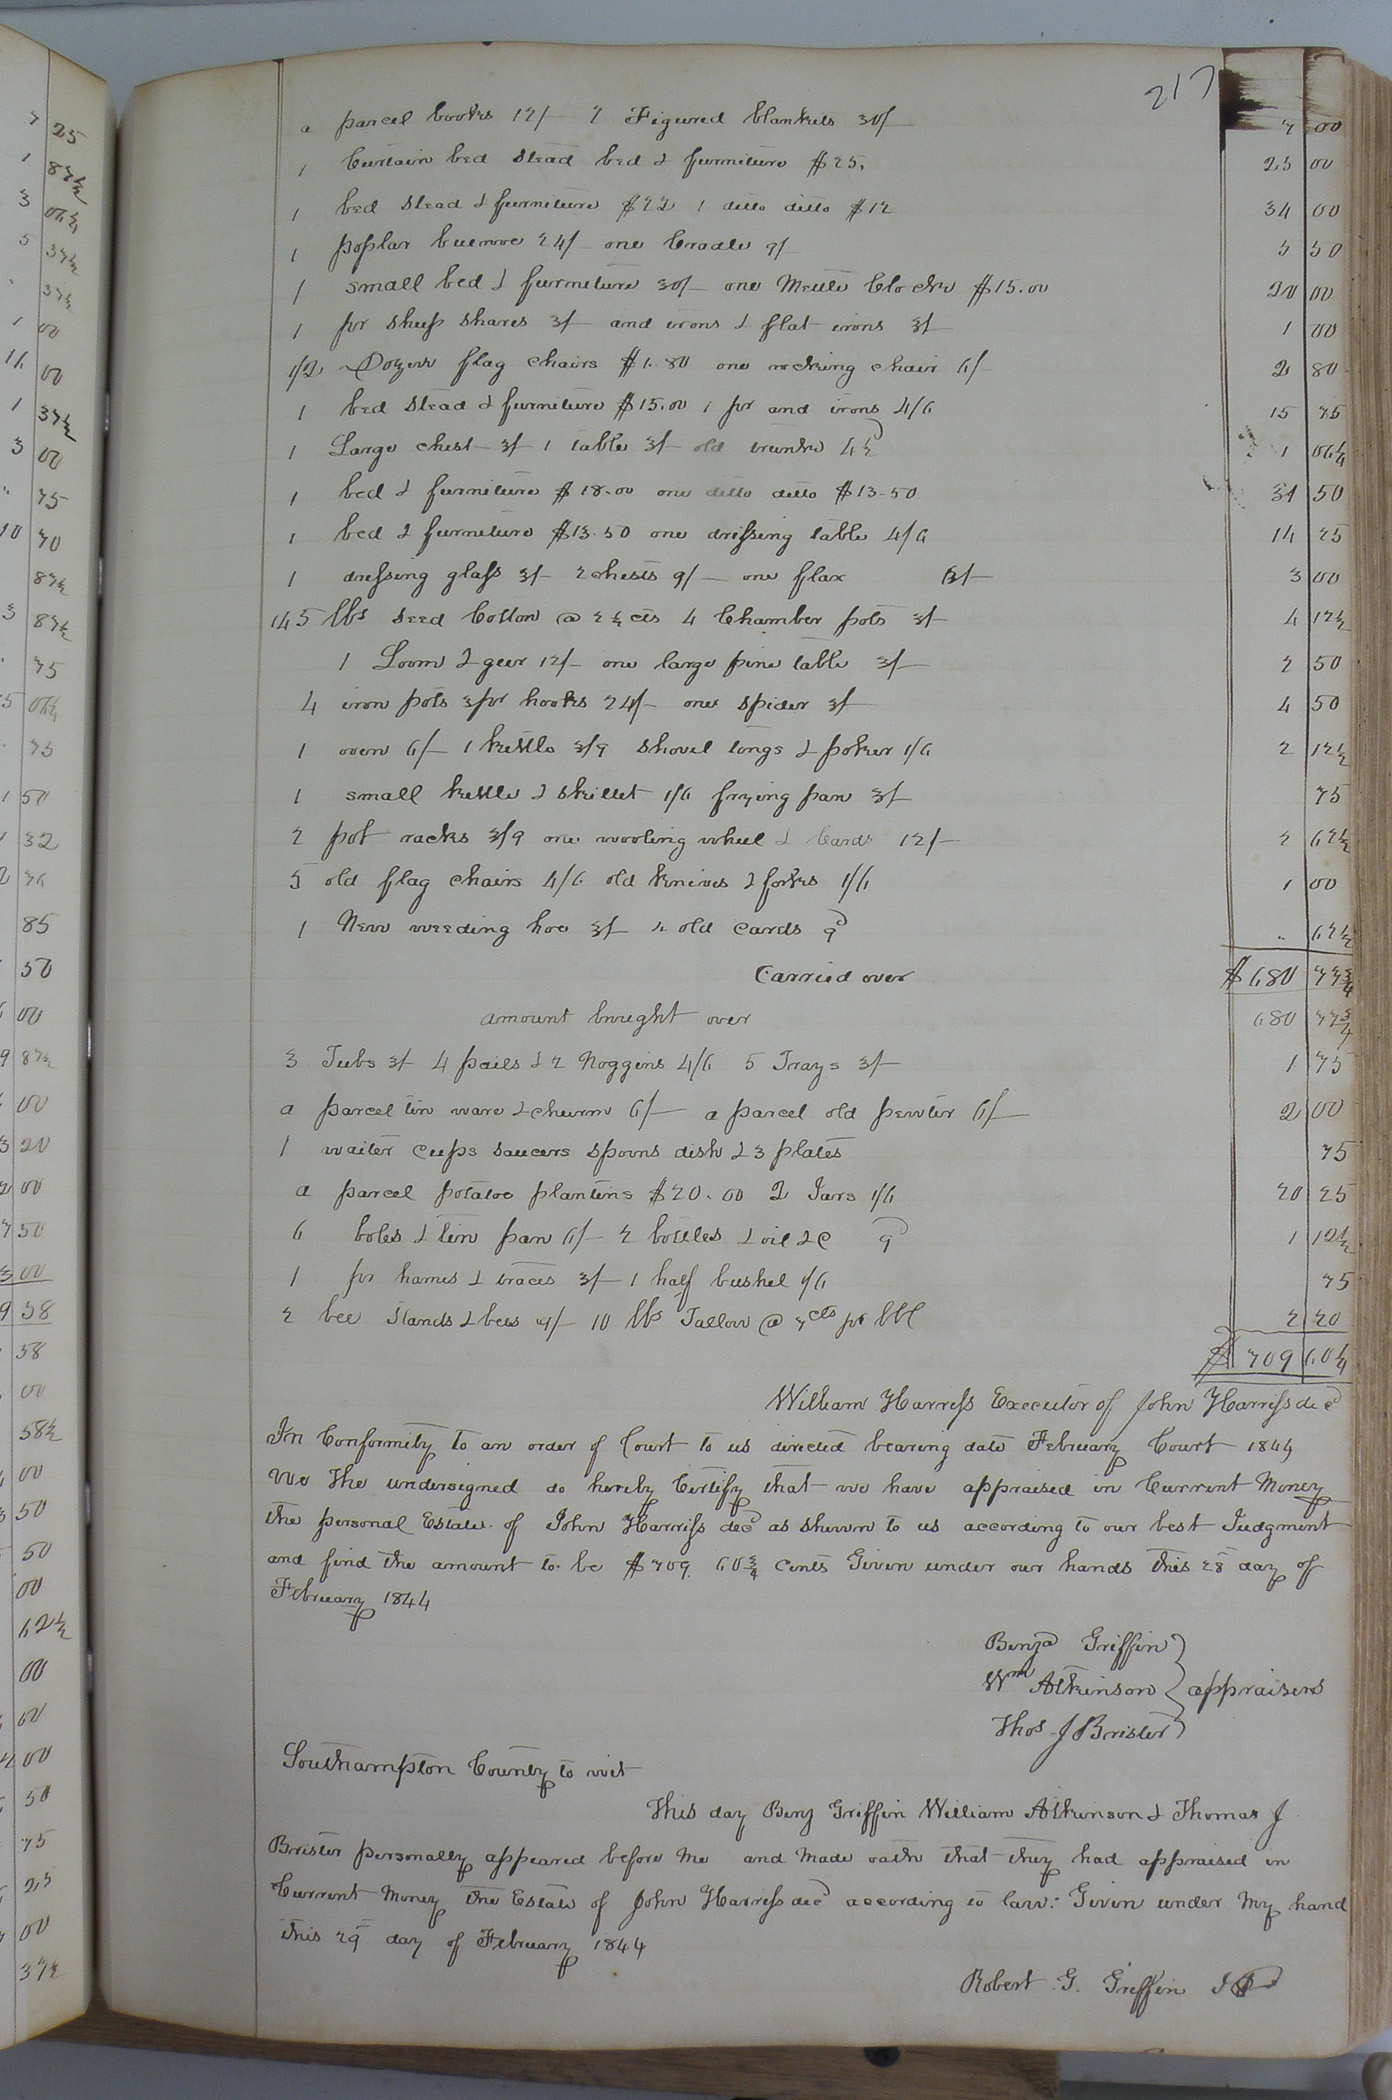 217
a parcel books 12/- 2 Figured blankets 30/- 7 00
1 Curtain bed stead bed & furniture $25. 25 00
1 bed stead & furniture $22 1 ditto ditto $12 34 00
1 poplar bureau 24/- one Cradle 9/- 5 50
1 small bed & furniture 30/- one Mettle Clocke $15.00 20 00
1 pr sheep shares 3/- and irons & flat irons 3/- 1 00
1/2 Dozen flag chairs $1.80 one rocking chair 6/- 2 80
1 bed stead & furniture $15.00 1 pr and irons 4/6 15 75
1 Large chest 3/- 1 table 3/- old trunke 4½d 1 06¼
1 bed & furniture $18.00 one ditto ditto $13.50 31 50
1 bed & furniture $13.50 one dressing table 4/6 14 25
1 dressing glass 3/- 2 chests 9/- one flax 6/- 3 00
145 lbs seed Cotton @ 2½ cts 4 Chamber pots 3/- 4 12½
1 Loom & geer 12/- one large pine table 3/- 2 50
4 iron pots 3 pr hooks 24/- one spider 3/- 4 50
1 oven 6/- 1 kettle 3/9 shovel tongs & poker 1/6 2 12½
1 small kettle & skillet 1/6 frying pan 3/- 75
2 pot racks 3/9 one wooling wheel & Cards 12/- 2 62½
5 old flag chairs 4/6 old knives & forks 1/6 1 00
1 New weeding hoe 3/- 2 old cards 9d " 62½
Carried over $680 77¾
amount brought over 680 77¾
3 Tubs 3/- 4 pails & 2 Noggins 4/6 5 Trays 3/- 1 75
a parcel tin ware & churn 6/- a parcel old pewter 6/- 2 00
1 waiter cups saucers spoons dish & 3 plates 75
a parcel potatoe plantins $20.00 2 Jars 1/6 20 25
6 boles & tin pan 6/- 2 bottles & oil &c 9d 1 12½
1 pr hames & traces 3/- 1 half bushel 1/6 75
2 bee stands & bees 9/- 10 lbs Tallow @ 7cts pr lbl 2 20
$ 709 60¼
William Harriss Executor of John Harriss decd
In Conformity to an order of Court to us directed bearing date February Court 1844
We the undersigned do hereby Certify that we have appraised in Current Money
the personal Estate of John Harriss decd as shewn to us according to our best Judgment
and find the amount to be $709. 60¾ cents Given under our hands this 28 day of
February 1844
Benja Griffin
Wm Atkinson } appraisers
Thos J Brister
Southampton County to wit
This day Benj Griffin William Atkinson & Thomas J
Brister personally appeared before me and made oath that they had appraised in
Current Money the Estate of John Harriss decd according to law: Given under my hand
this 29 day of February 1844
Robert G. Griffin JP